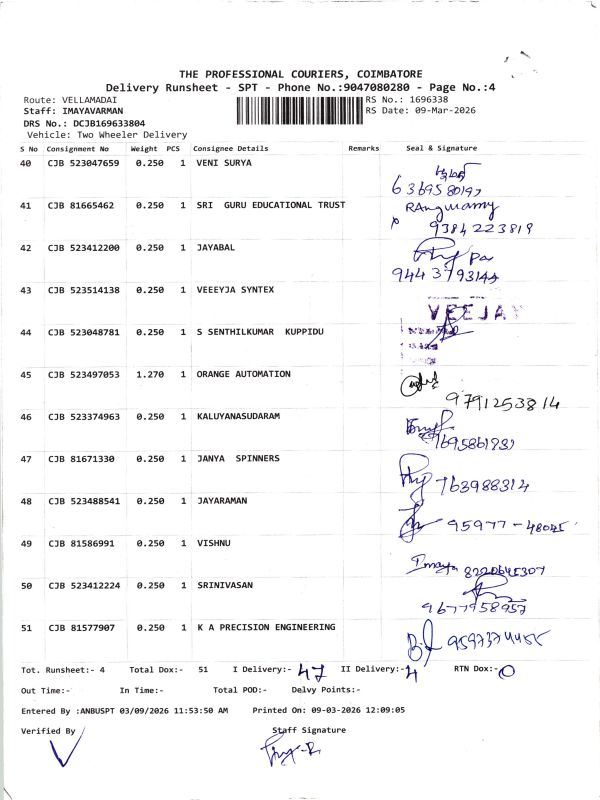 THE PROFESSIONAL COURIERS, COIMBATORE
Delivery Runsheet - SPT - Phone No.:9047080280 - Page No.:4
Route: VELLAMADAI RS No.: 1696338
Staff: IMAYAVARMAN RS Date: 09-Mar-2026
DRS No.: DCJB169633804
Vehicle: Two Wheeler Delivery
S No Consignment No Weight PCS Consignee Details Remarks Seal & Signature
40 CJB 523047659 0.250 1 VENI SURYA
6369580197
41 CJB 81665462 0.250 1 SRI GURU EDUCATIONAL TRUST
9384223819
42 CJB 523412200 0.250 1 JAYABAL
9443793144
43 CJB 523514138 0.250 1 VEEEYJA SYNTEX
VEEJAY
44 CJB 523048781 0.250 1 S SENTHILKUMAR KUPPIDU
45 CJB 523497053 1.270 1 ORANGE AUTOMATION
9791253814
46 CJB 523374963 0.250 1 KALUYANASUDARAM
47 CJB 81671330 0.250 1 JANYA SPINNERS
763988314
48 CJB 523488541 0.250 1 JAYARAMAN
49 CJB 81586991 0.250 1 VISHNU
50 CJB 523412224 0.250 1 SRINIVASAN
9677958957
51 CJB 81577907 0.250 1 K A PRECISION ENGINEERING
Tot. Runsheet:- 4 Total Dox:- 51 I Delivery:- 47 II Delivery:- 4 RTN Dox:- 0
Out Time:- In Time:- Total POD:- Delvy Points:-
Entered By :ANBUSPT 03/09/2026 11:53:50 AM Printed On: 09-03-2026 12:09:05
Verified By Staff Signature